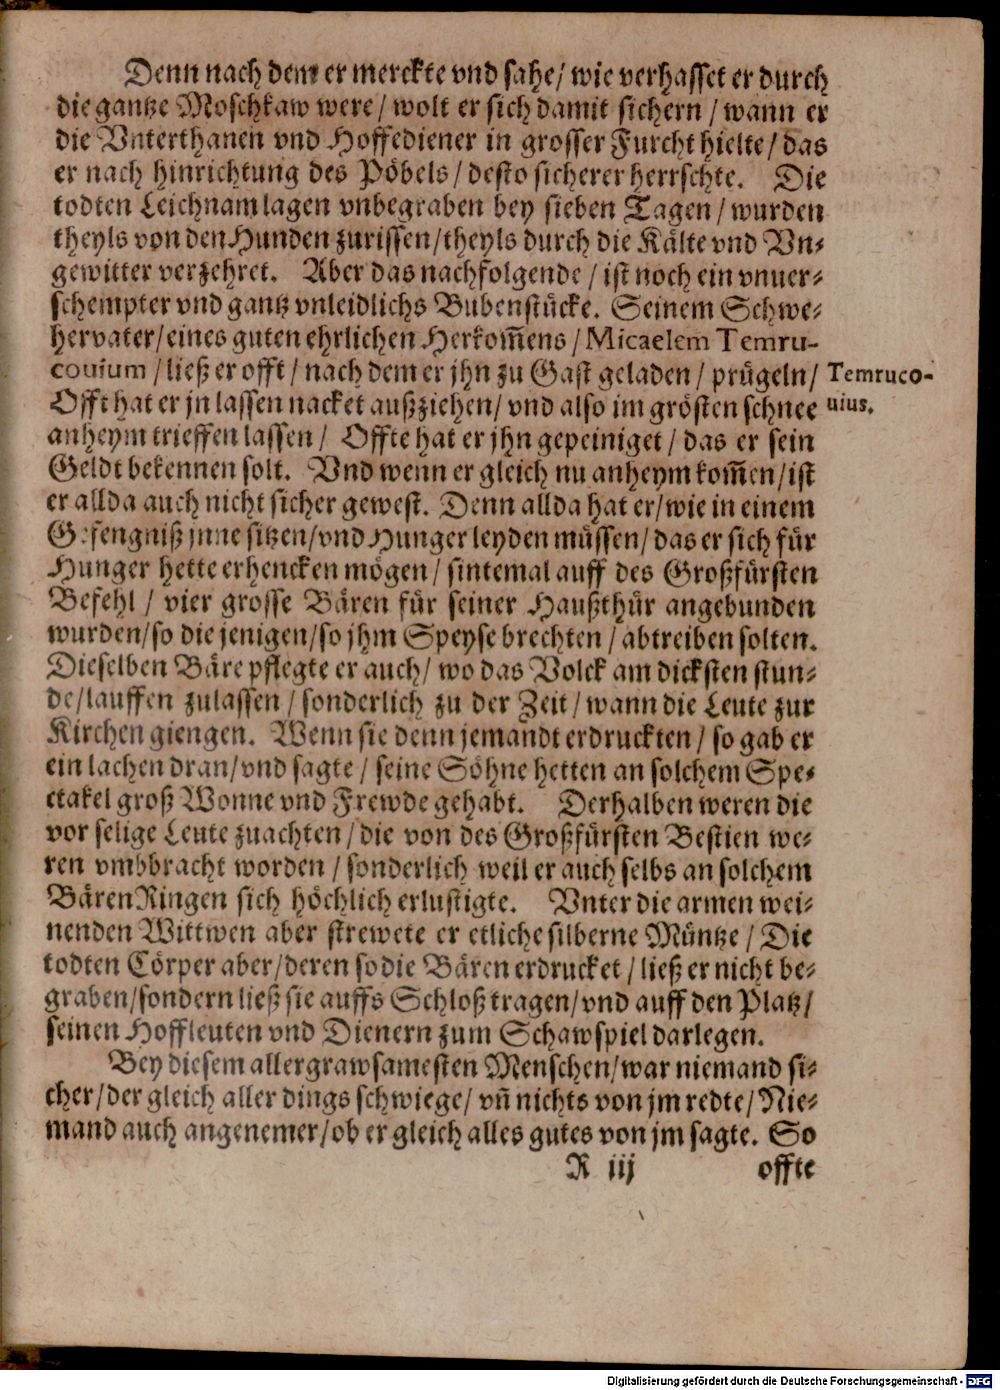 Denn nach dem er merckte vnd sahe/ wie verhasset er durch
die gantze Moschkaw were/ wolt er sich damit sichern/ wann er
die Vnterthanen vnd Hoffediener in grosser Furcht hielte/ das
er nach hinrichtung des Pöbels/ desto sicherer herrschte. Die
todten Leichnam lagen vnbegraben bey sieben Tagen/ wurden
theyls von den Hunden zurissen/ theyls durch die Kälte vnd Vn-
gewitter verzehret. Aber das nachfolgende/ ist noch ein vnuer-
schempter vnd gantz vnleidlichs Bubenstücke. Seinem Schwe-
hervater/ eines guten ehrlichen Herkom̃ens/ Micaelem Temru-
couium/ ließ er offt/ nach dem er jhn zu Gast geladen/ prügeln/
Temruco-
uius.
Offt hat er jn lassen nacket außziehen/ vnd also im grösten schnee
anheym trieffen lassen/ Offte hat er jhn gepeiniget/ das er sein
Geldt bekennen solt. Vnd wenn er gleich nu anheym kom̃en/ ist
er allda auch nicht sicher gewest. Denn allda hat er/ wie in einem
Gefengniß jnne sitzen/ vnd Hunger leyden müssen/ das er sich für
Hunger hette erhencken mögen/ sintemal auff des Großfürsten
Befehl/ vier grosse Bären für seiner Haußthür angebunden
wurden/ so die jenigen/ so jhm Speyse brechten/ abtreiben solten.
Dieselben Bäre pflegte er auch/ wo das Volck am dicksten stun-
de/ lauffen zulassen/ sonderlich zu der Zeit/ wann die Leute zur
Kirchen giengen. Wenn sie denn jemandt erdruckten/ so gab er
ein lachen dran/ vnd sagte/ seine Söhne hetten an solchem Spe-
ctakel groß Wonne vnd Frewde gehabt. Derhalben weren die
vor selige Leute zuachten/ die von des Großfürsten Bestien we-
ren vmbbracht worden/ sonderlich weil er auch selbs an solchem
BärenRingen sich höchlich erlustigte. Vnter die armen wei-
nenden Wittwen aber strewete er etliche silberne Müntze/ Die
todten Cörper aber/ deren so die Bären erdrucket/ ließ er nicht be-
graben/ sondern ließ sie auffs Schloß tragen/ vnd auff den Platz/
seinen Hoffleuten vnd Dienern zum Schawspiel darlegen.
Bey diesem allergrawsamesten Menschen/ war niemand si-
cher/ der gleich aller dings schwiege/ vñ nichts von jm redte/ Nie-
mand auch angenemer/ ob er gleich alles gutes von jm sagte. So
R iij offte
Digitalisierung gefördert durch die Deutsche Forschungsgemeinschaft - DFG